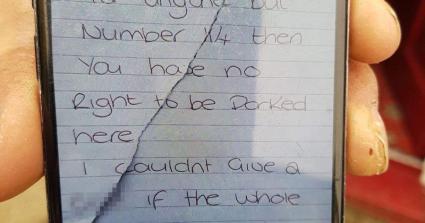 but
Number 14 then
You have no
Right to be Parked
here
I couldnt Give a
if the whole